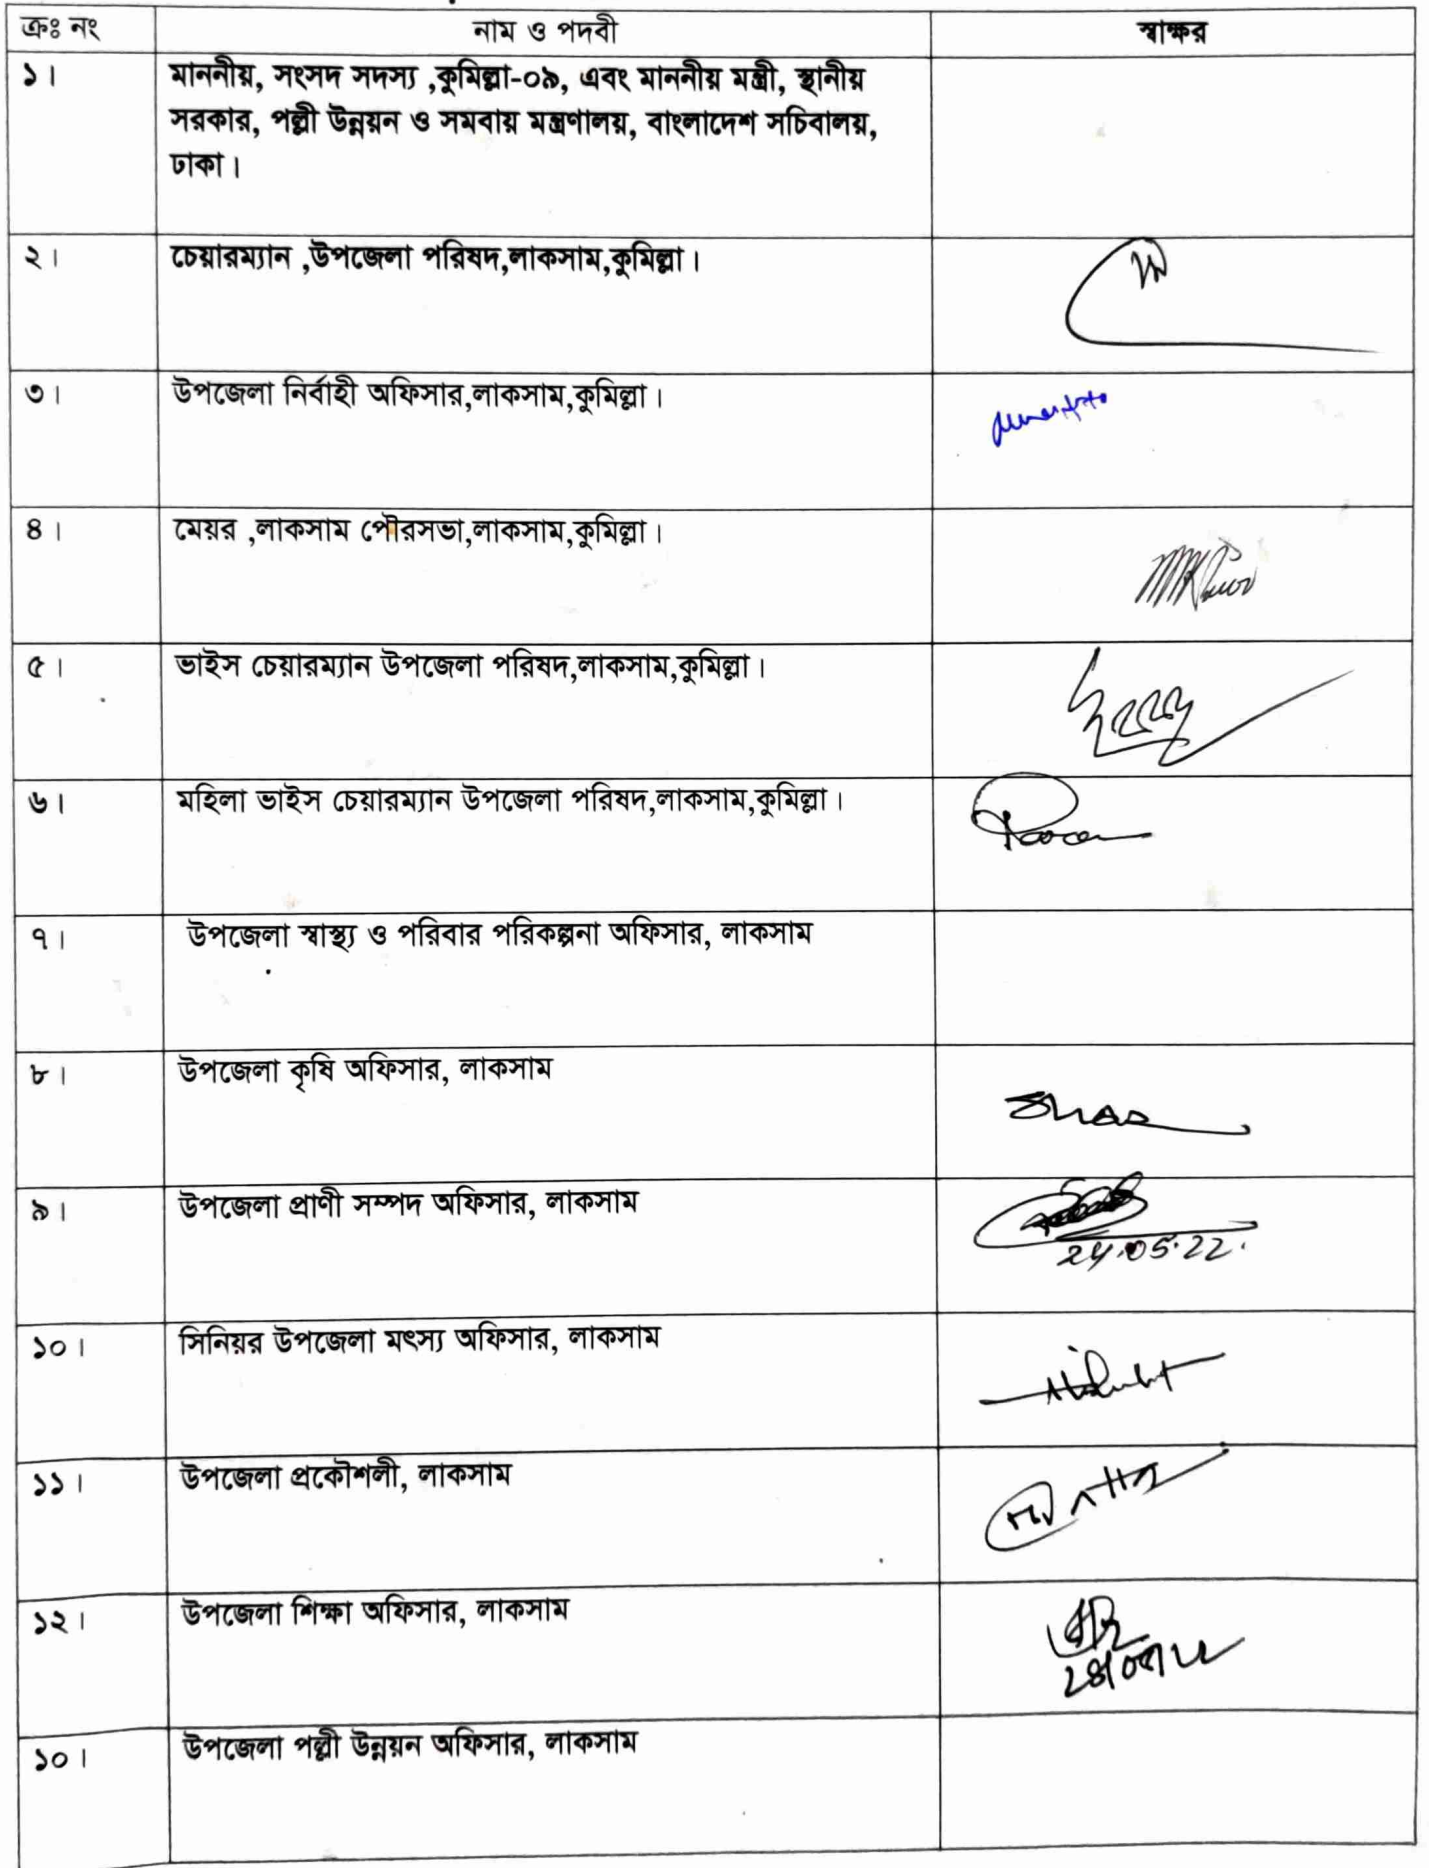 ক্রঃ নং নাম ও পদবী স্বাক্ষর
১। মাননীয়, সংসদ সদস্য ,কুমিল্লা-০৯, এবং মাননীয় মন্ত্রী, স্থানীয়
সরকার, পল্লী উন্নয়ন ও সমবায় মন্ত্রণালয়, বাংলাদেশ সচিবালয়,
ঢাকা।
২। চেয়ারম্যান ,উপজেলা পরিষদ,লাকসাম,কুমিল্লা।
৩। উপজেলা নির্বাহী অফিসার,লাকসাম,কুমিল্লা।
৪। মেয়র ,লাকসাম পৌরসভা,লাকসাম,কুমিল্লা।
৫। ভাইস চেয়ারম্যান উপজেলা পরিষদ,লাকসাম,কুমিল্লা।
৬। মহিলা ভাইস চেয়ারম্যান উপজেলা পরিষদ,লাকসাম,কুমিল্লা।
৭। উপজেলা স্বাস্থ্য ও পরিবার পরিকল্পনা অফিসার, লাকসাম
৮। উপজেলা কৃষি অফিসার, লাকসাম
৯। উপজেলা প্রাণী সম্পদ অফিসার, লাকসাম
24.05.22.
১০। সিনিয়র উপজেলা মৎস্য অফিসার, লাকসাম
১১। উপজেলা প্রকৌশলী, লাকসাম
১২। উপজেলা শিক্ষা অফিসার, লাকসাম
১০। উপজেলা পল্লী উন্নয়ন অফিসার, লাকসাম